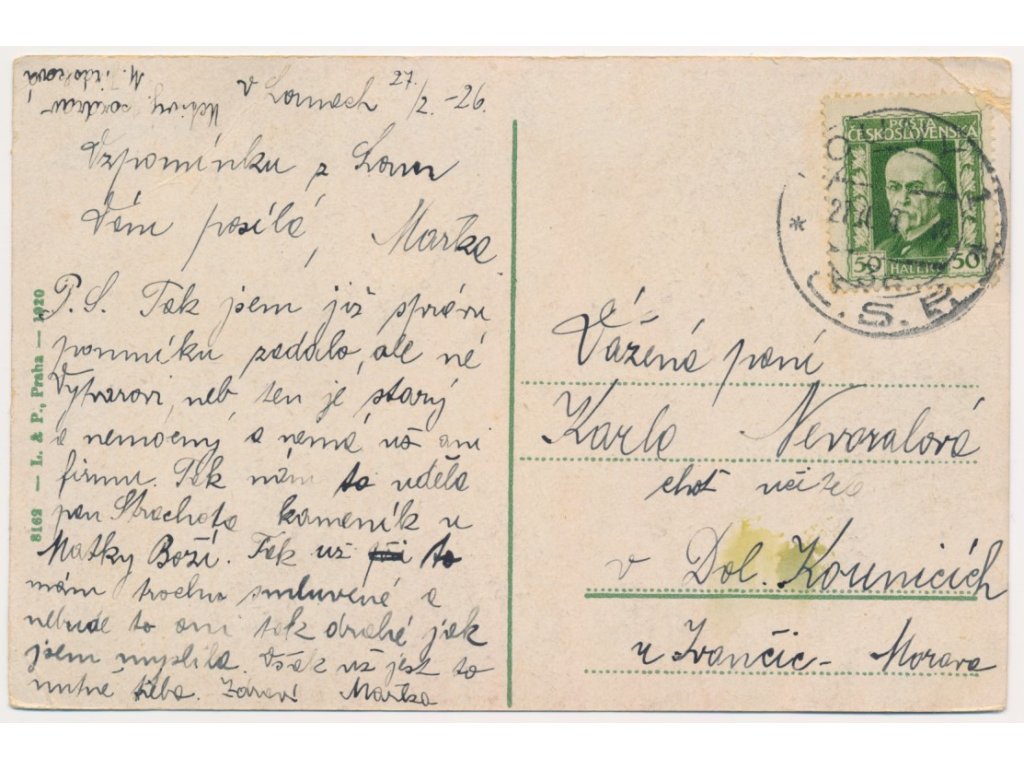 v Lomech 27/2. -26.
Vzpomínku z Lom
Vám posílá,
Mařka.
P. S. Tak jsem již správu
pomníku zadala, ale né
Vytvarovi, neb ten je starý
a nemocný a nemá už ani
firmu. Tak nám to udělá
pan Strachota kameník u
Matky Boží. Tak už to
mám trochu smluvené a
nebude to ani tak drahé jak
jsem myslila. Však už jest to
nutné třeba. Zdraví Mařka
8162 — L. & P., Praha — 1920
POŠTA
ČESKOSLOVENSKÁ
50 HALÉŘŮ 50
Č.S.R.
Vážená paní
Karla Nevoralová
choť učitele
v Dol. Kounicích
u Ivančic - Morava